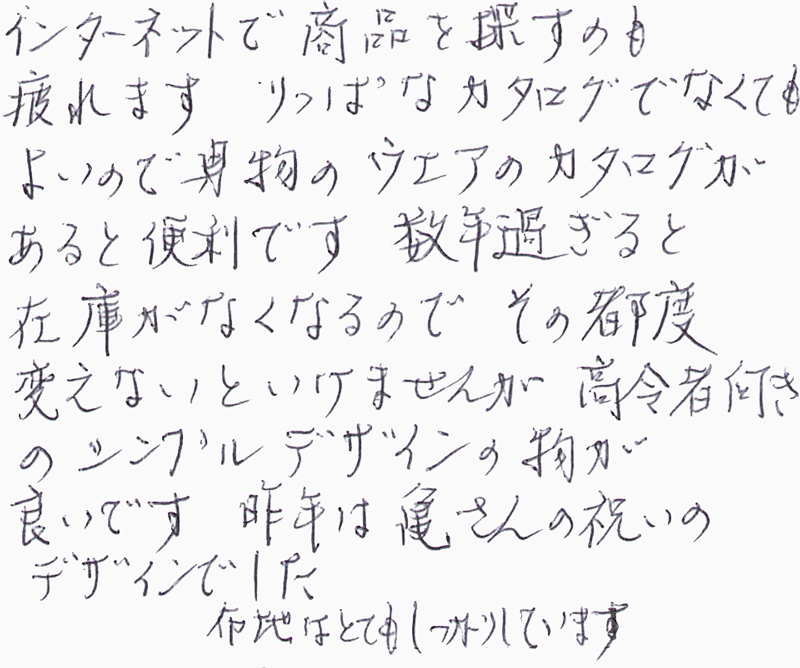 インターネットで商品を探すのも
疲れます りっぱなカタログでなくても
よいので専物のウエアのカタログが
あると便利です 数年過ぎると
在庫がなくなるので その都度
変えないといけませんが 高令者向き
のシンプルデザインの物が
良いです 昨年は亀さんの祝いの
デザインでした
布地はとてもしっかりしています